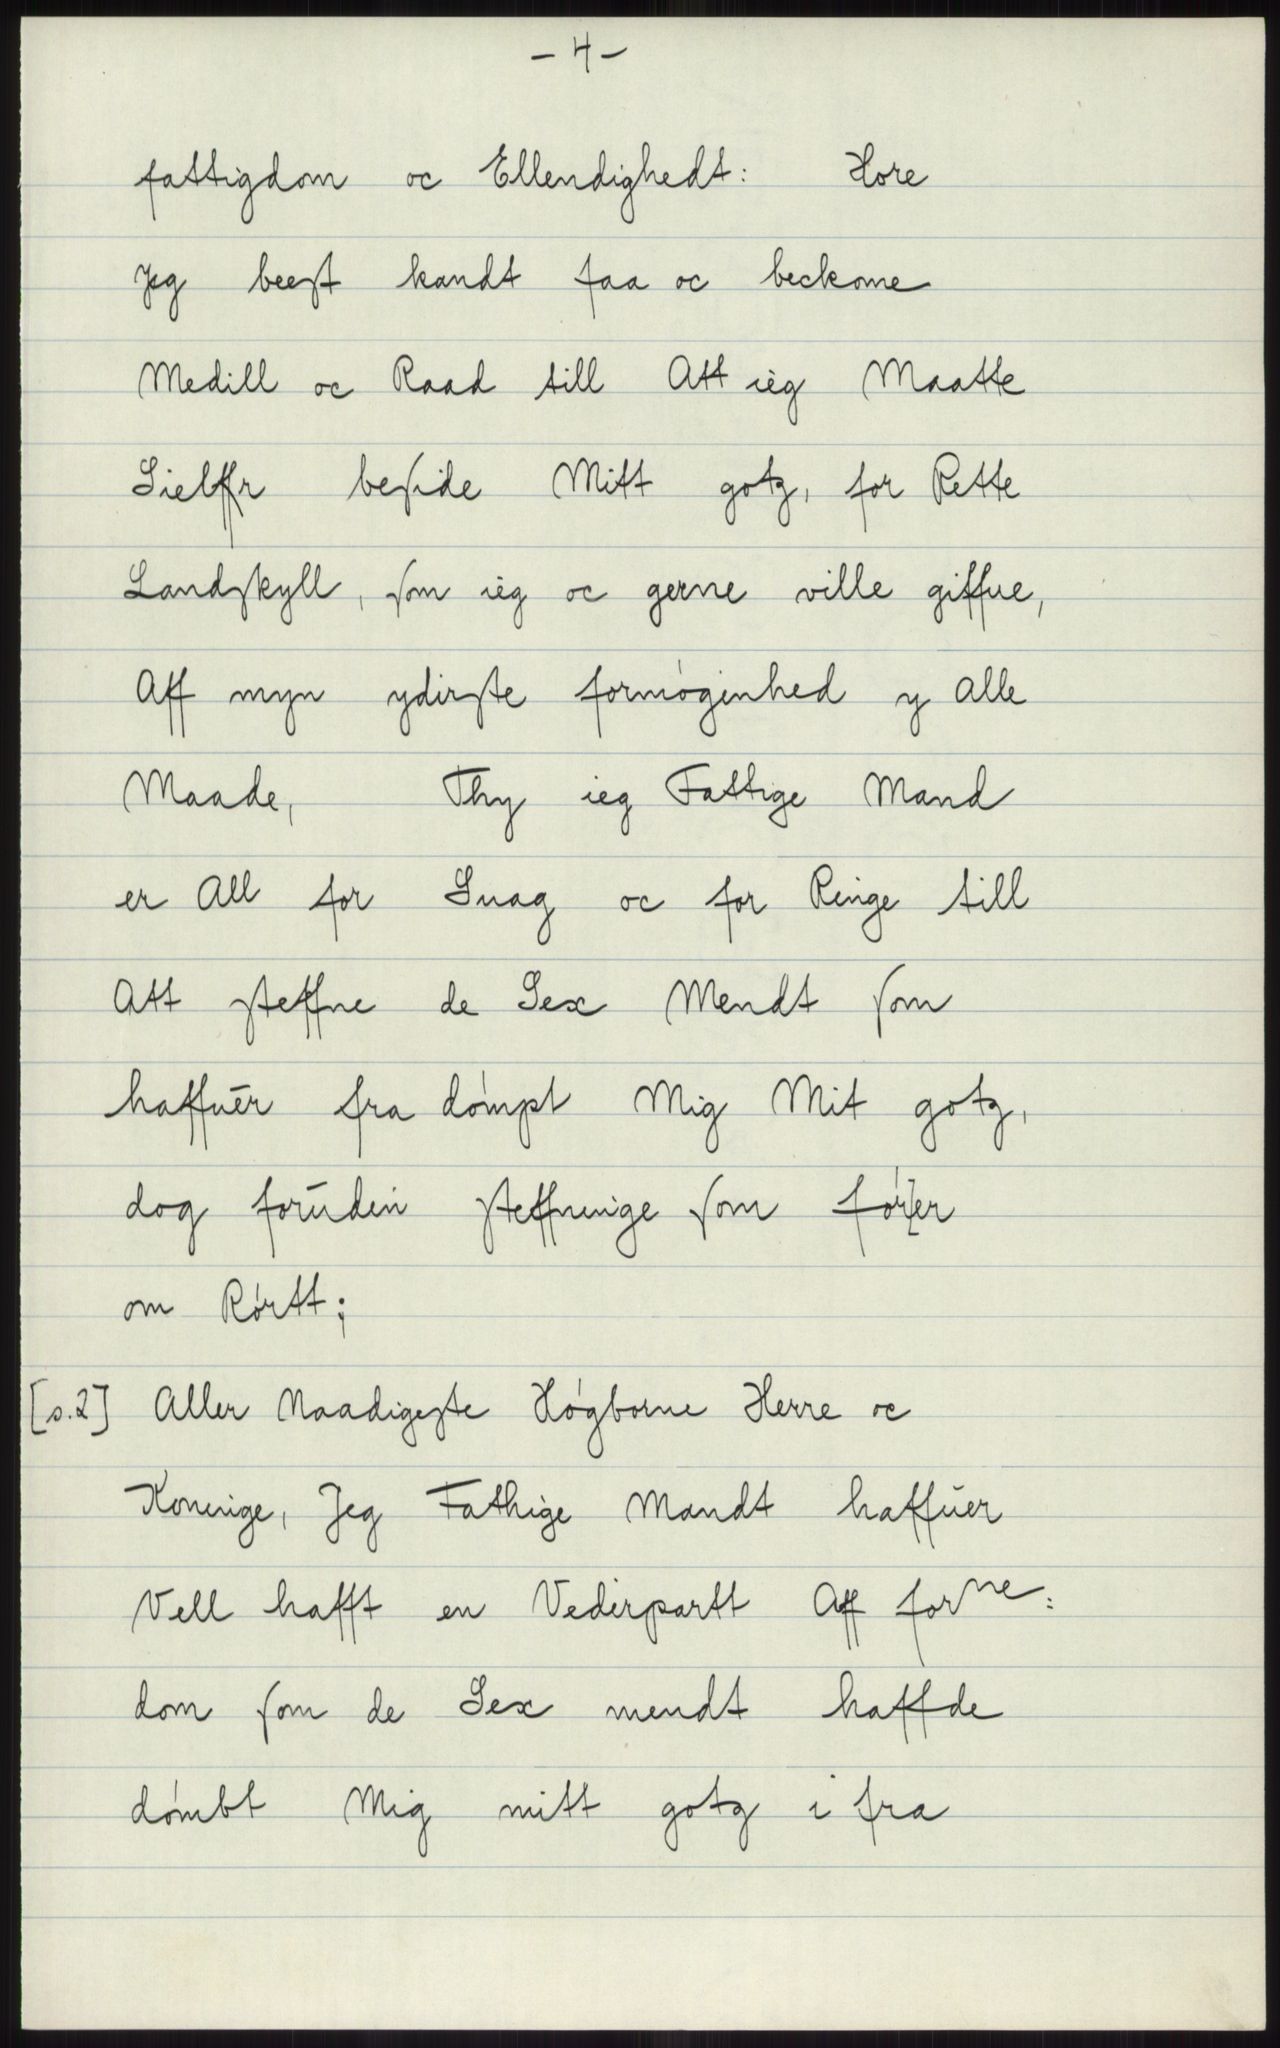 - 4 -
fattigdom oc Ellendighedt: Hore
Jeg beeſt kandt faa oc beckome
Medill oc Raad till Att ieg Maatte
Sielffr beſide Mitt gotz, for Rette
Landſkyll, ſom ieg oc gerne ville giffue,
Aff myn ydirſte formógenhed y Alle
Maade, Thy ieg Fattige Mand
er All for Suag oc for Ringe till
Att ſteffne de Sex Mendt ſom
haffuēr fra dómpt Mig Mit gotz,
dog forūden ſteffninge ſom fór[er
om Rórtt;
[s.2] Aller Naadigeſte Hógborne Herre oc
Koninge, Jeg Fathige Mandt haffūer
Vell hafft en Vederpartt Aff forne:
dom ſom de Sex mendt haffde
dómbt Mig mitt gotz i fra